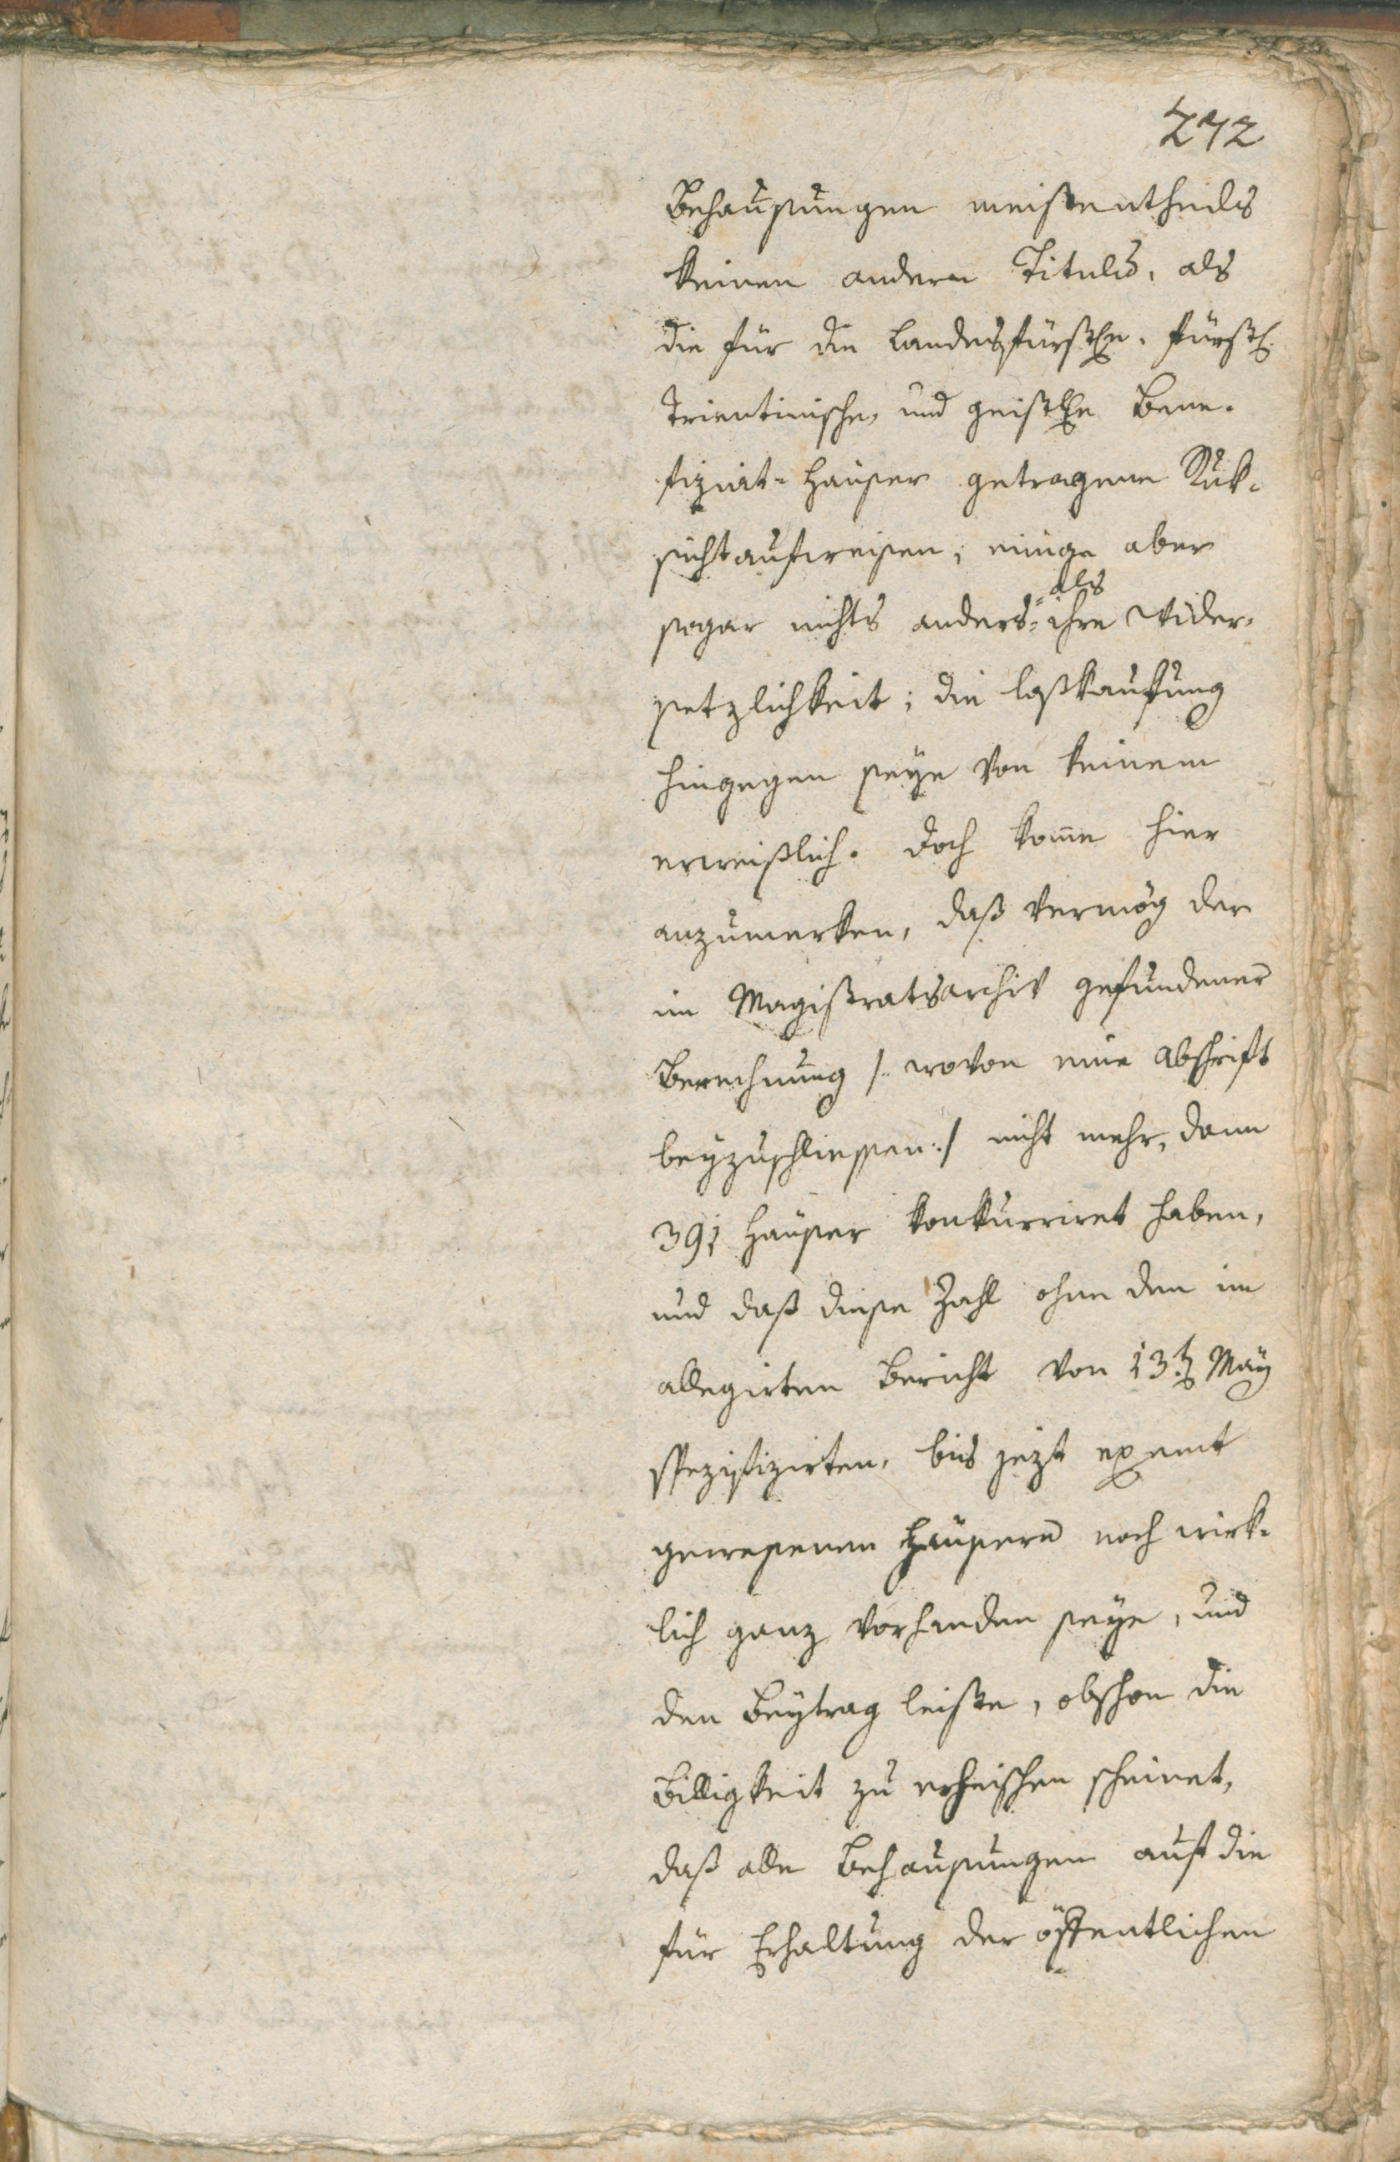 272
Behausungen meistentheils
keinen andern Titulus, als
die für die Landesfürstlen. fürstl.
Trientinische, und geistlle Bene-
fiziat-Häuser getragene Rük-
sicht aufweisen; einige aber
sogar nichts anders als ihre Wider-
setzlichkeit; die loßkaufung
hingegen seye von keinem
erweißlich. Doch kom̄e hier
anzumerken, daß vermög der
im Magistratsarchiv gefundener
Berechnung /: wovon eine abschrift
beyzuschliessen :/ nicht mehr, dann
391 Häuser konkurriret haben,
und daß diese Zahl ohne den im
allegirten Bericht von 13t. May
spezifizirten, bis jezt exemt
gewesenen Häusern noch wirk-
lich ganz vorhanden seye, und
den Beytrag leiste, obschon die
Billigkeit zu erheischen scheinet,
daß alle Behausungen auf die
für Erhaltung der öffentlichen